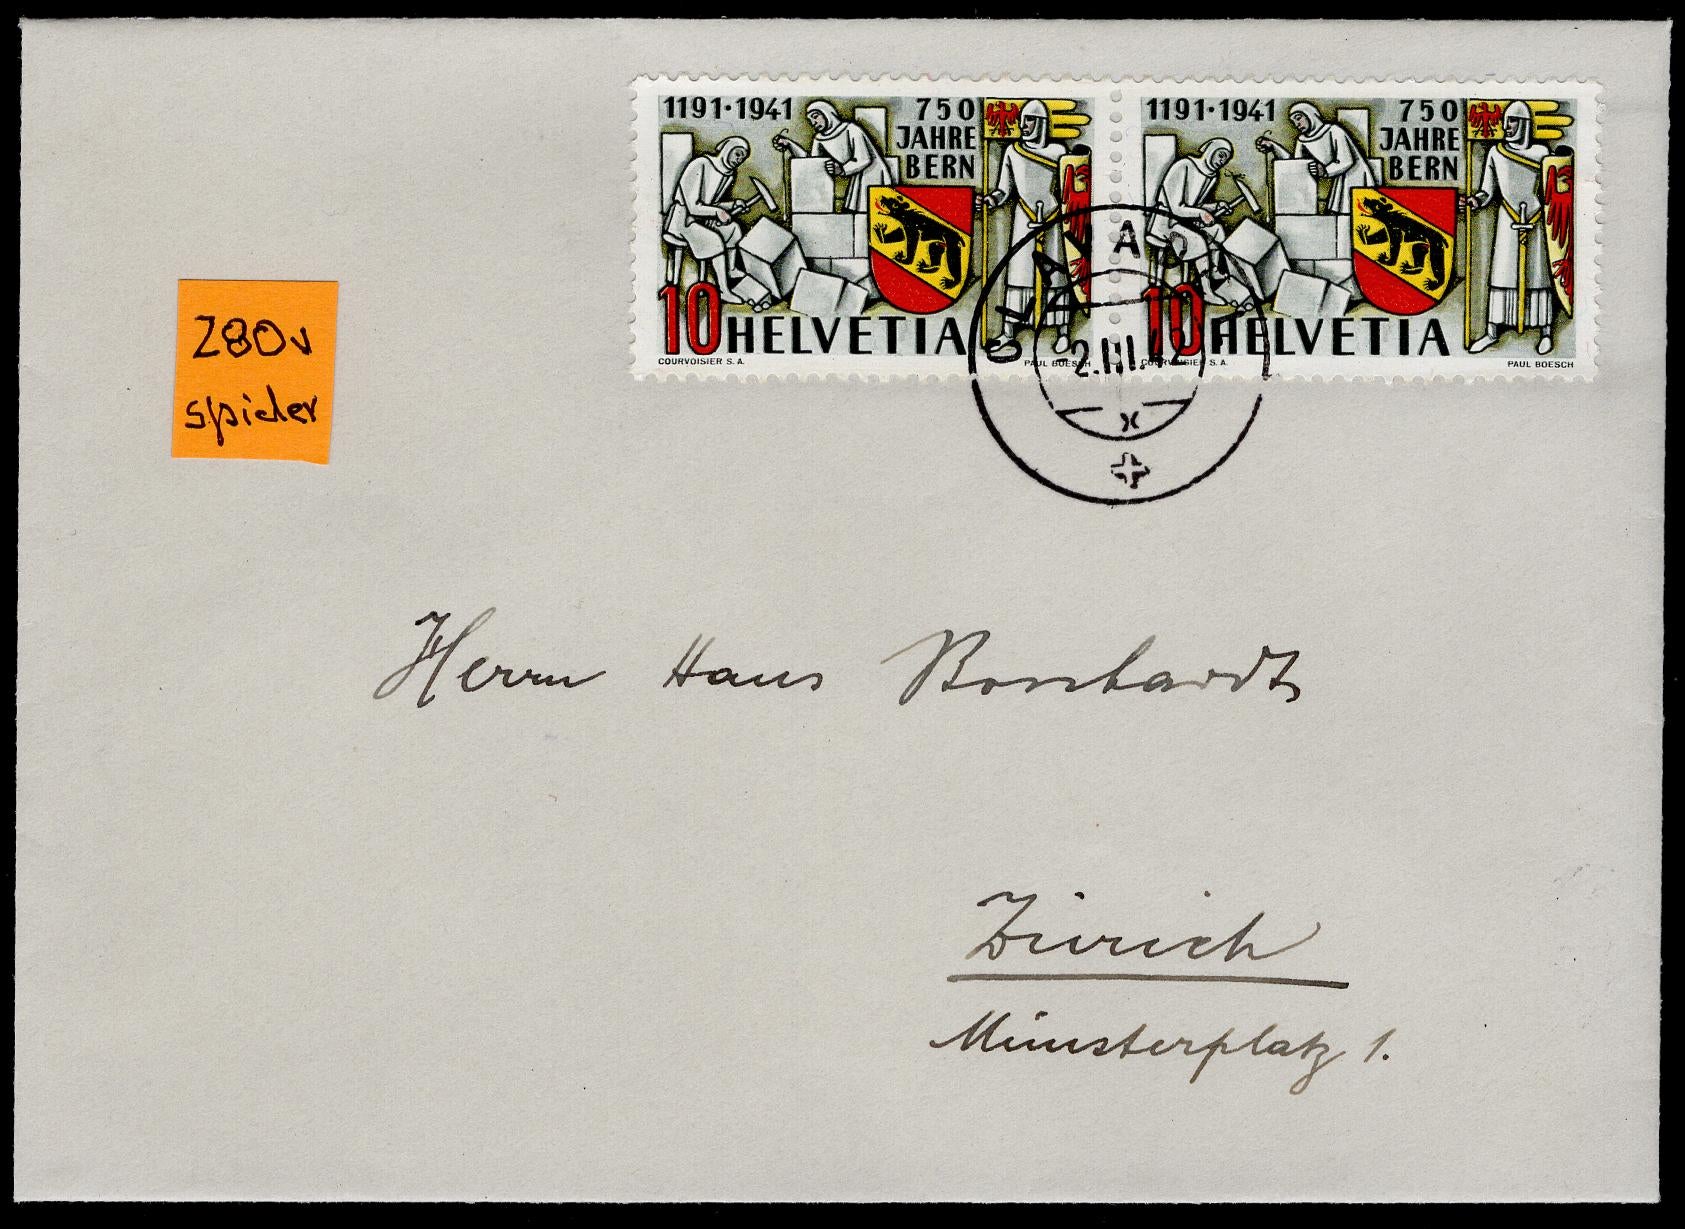 1191·1941 750
JAHRE
BERN
10 HELVETIA
COURVOISIER S. A. PAUL BOESCH
1191·1941 750
JAHRE
BERN
10 HELVETIA
COURVOISIER S. A. PAUL BOESCH
Z80v
spider
Herrn Hans
Zürich
Münsterplatz 1.